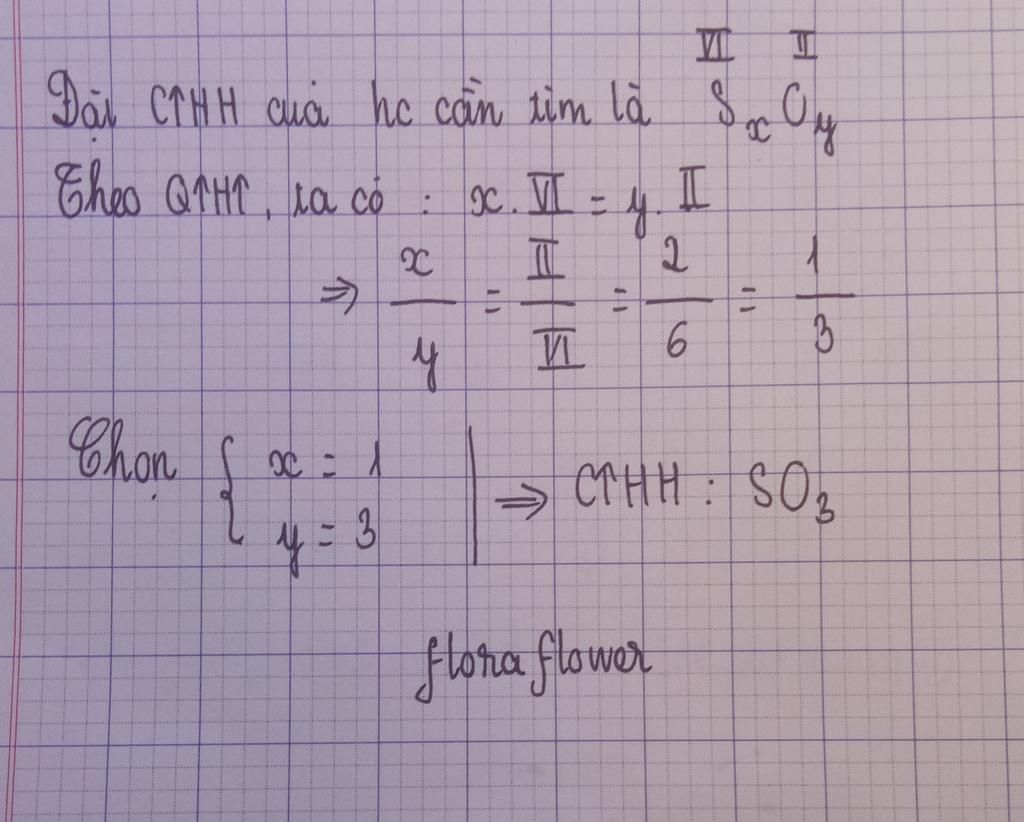 VI II
Đặt CTHH của hc cần tìm là SxOy
Theo QTHT, ta có : x.VI = y.II
⇒ x/y = II/VI = 2/6 = 1/3
Chọn { x = 1
y = 3 | ⇒ CTHH : SO₃
flora flower